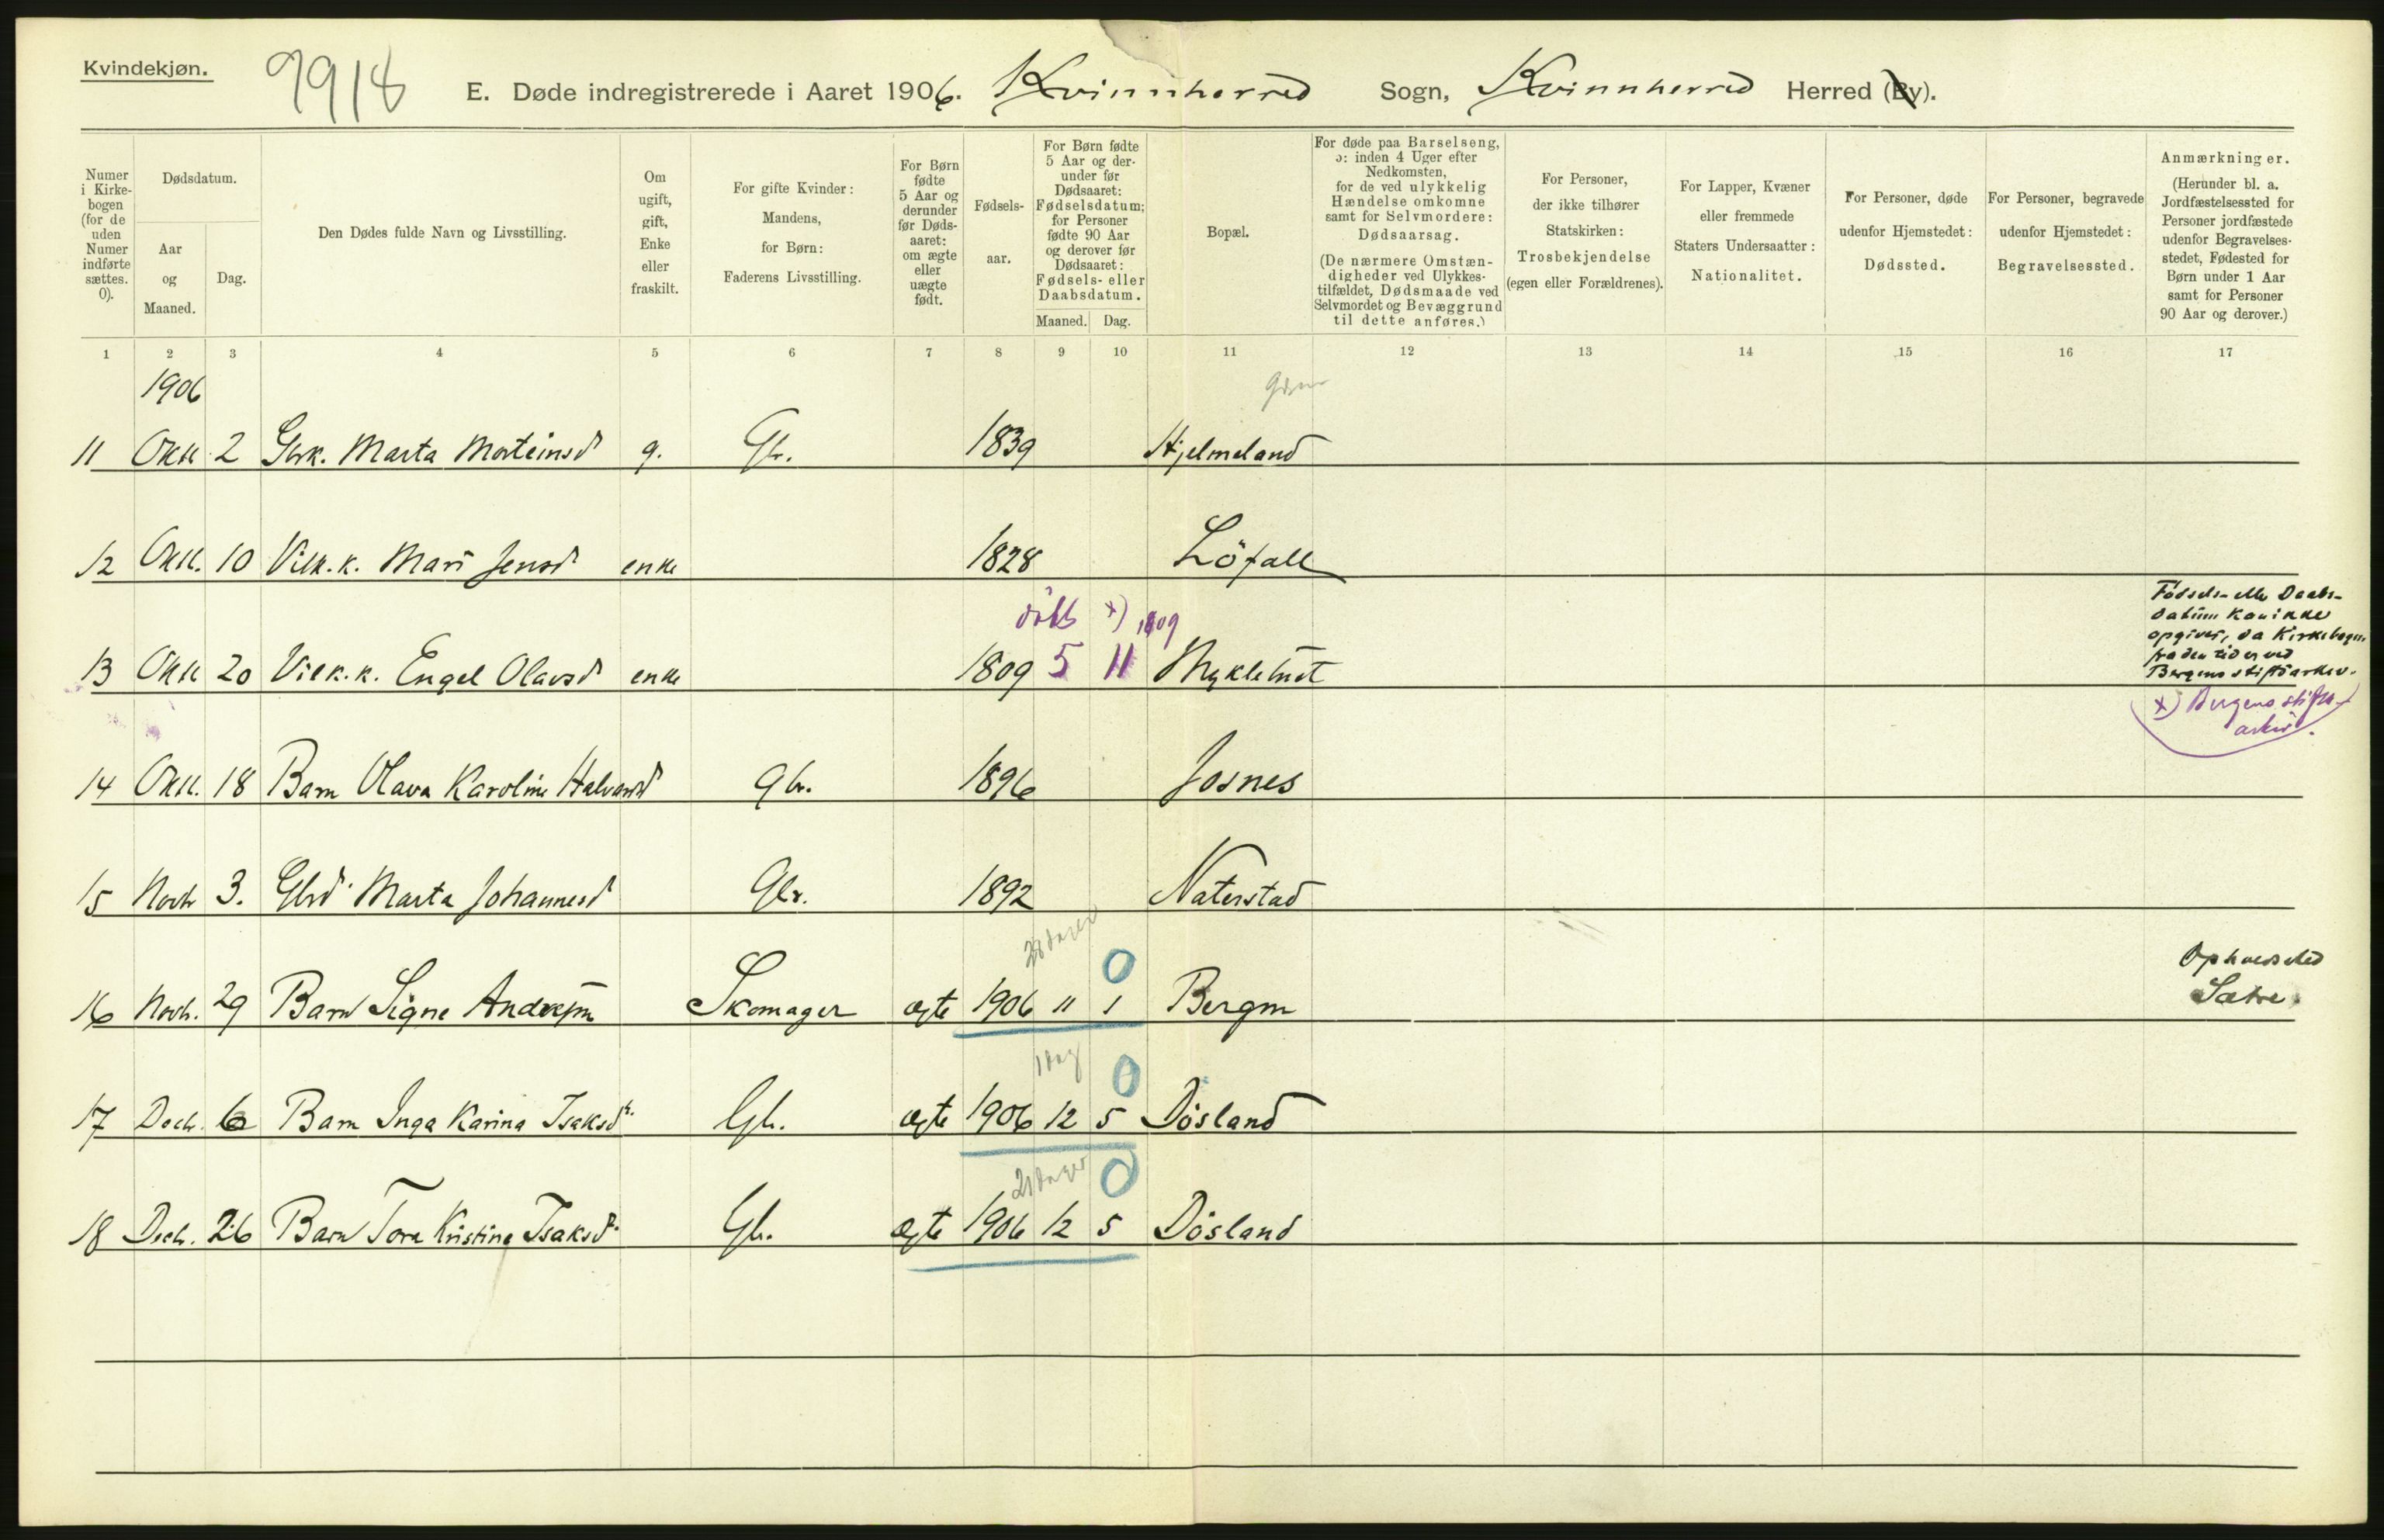 Kvindekjøn.
9918
E. Døde indregistrerede i Aaret 1906. Kvinnherred Sogn, Kvinnherred Herred (By).
Numer i Kirke-bogen (for de uden Numer indførte sættes. 0).
Dødsdatum.
Aar og Maaned.
Dag.
Den Dødes fulde Navn og Livsstilling.
Om ugift, gift, Enke eller fraskilt.
For gifte Kvinder: Mandens, for Børn: Faderens Livsstilling.
For Børn fødte 5 Aar og derunder før Døds-aaret: om ægte eller uægte født.
Fødsels-aar.
For Børn fødte 5 Aar og der-under før Dødsaaret: Fødselsdatum; for Personer fødte 90 Aar og derover før Dødsaaret: Fødsels- eller Daabsdatum.
Maaned. Dag.
Bopæl.
For døde paa Barselseng, ɔ: inden 4 Uger efter Nedkomsten, for de ved ulykkelig Hændelse omkomne samt for Selvmordere: Dødsaarsag.
(De nærmere Omstæn-digheder ved Ulykkes-tilfældet, Dødsmaade ved Selvmordet og Bevæggrund til dette anføres.)
For Personer, der ikke tilhører Statskirken: Trosbekjendelse (egen eller Forældrenes).
For Lapper, Kvæner eller fremmede Staters Undersaatter: Nationalitet.
For Personer, døde udenfor Hjemstedet: Dødssted.
For Personer, begravede udenfor Hjemstedet: Begravelsessted.
Anmærkninger.
(Herunder bl. a. Jordfæstelsessted for Personer jordfæstede udenfor Begravelses-stedet, Fødested for Børn under 1 Aar samt for Personer 90 Aar og derover.)
1 2 3 4 5 6 7 8 9 10 11 12 13 14 15 16 17
1906
11 Oktr 2 Marta Morteinsd g. Gbr. 1839 Hjelmeland
12 Oktr. 10 Vilk.k. Mari Jensd enke 1828 Löfall
døbt x) 1809
13 Oktr 20 Vilk.k. Engel Olavsd enke 1809 5 11 Myklebust
Fødsels- eller Daabs-
datum kan ikke
opgives, da Kirkebogen
fra den tid er ved
Bergens stiftsarkiv.
x) Bergens stifts-
arkiv.
14 Oktr. 18 Barn Olava Karoline Halvorsd gbr. 1896 Josnes
15 Novbr 3. Gbrd. Marta Johannesd Gbr. 1892 Naterstad
28 dager 0
16 Novbr. 29 Barn Signe Skomager ægte 1906 11 1 Bergen
Opholdssted
Sætre.
1 dag 0
17 Decbr. 6 Barn Inga Karina Isaksdr. Gbr. ægte 1906 12 5 Dösland
21 dager 0
18 Decbr. 26 Barn Tora Kristina Isaksd. Gbr. ægte 1906 12 5 Dösland